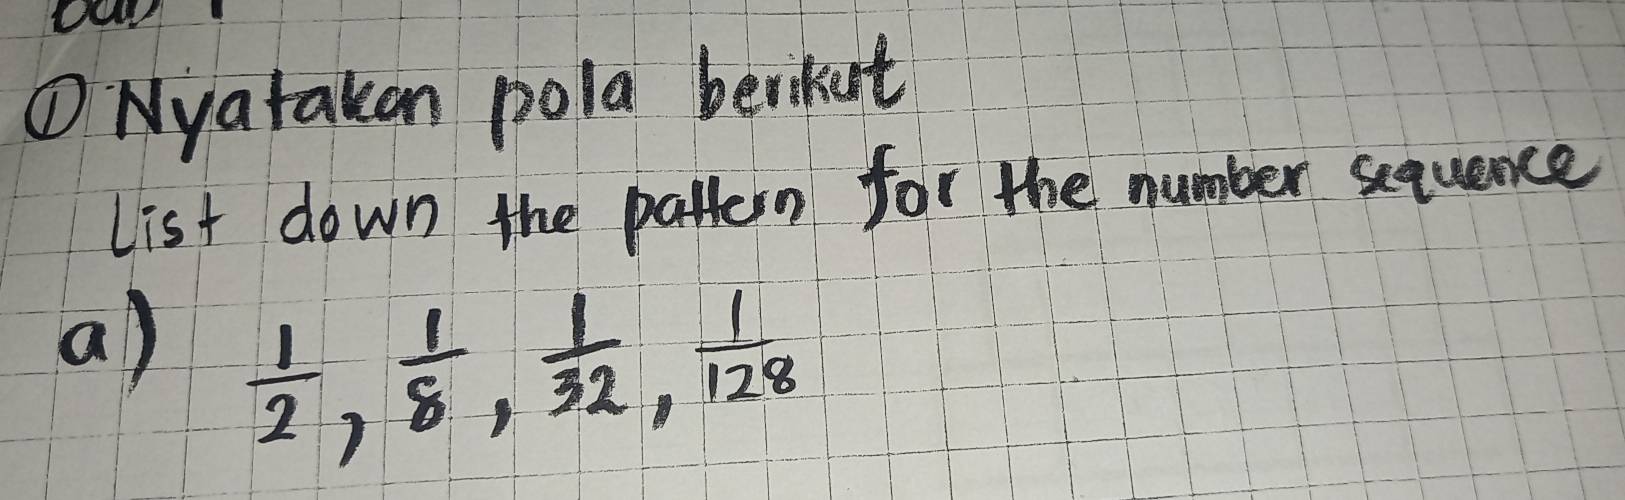 ① Nyatakan pola berikut
List down the pattern for the number sequence
a) 1/2, 1/8, 1/32, 1/128